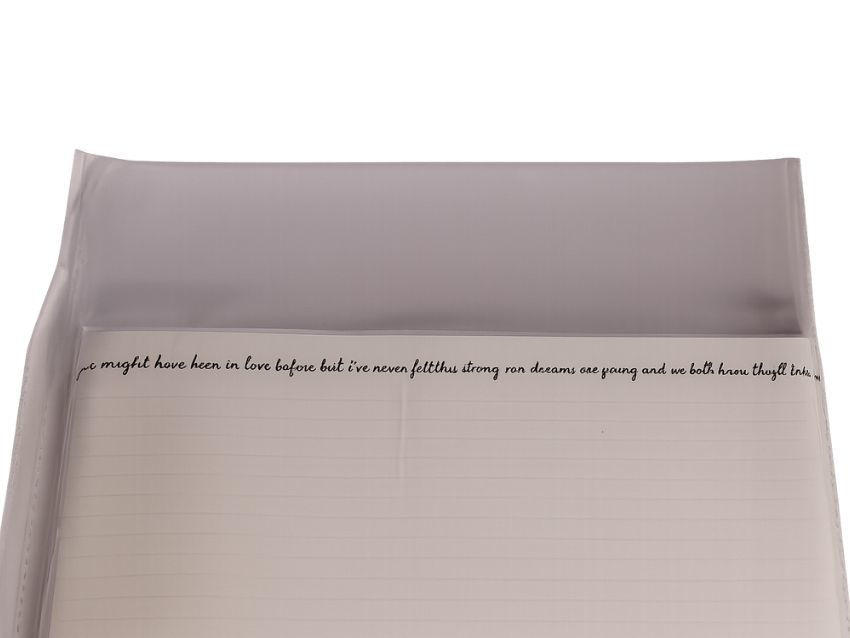 might have been in love before but i've never felt this strong our dreams are young and we both know they'll take